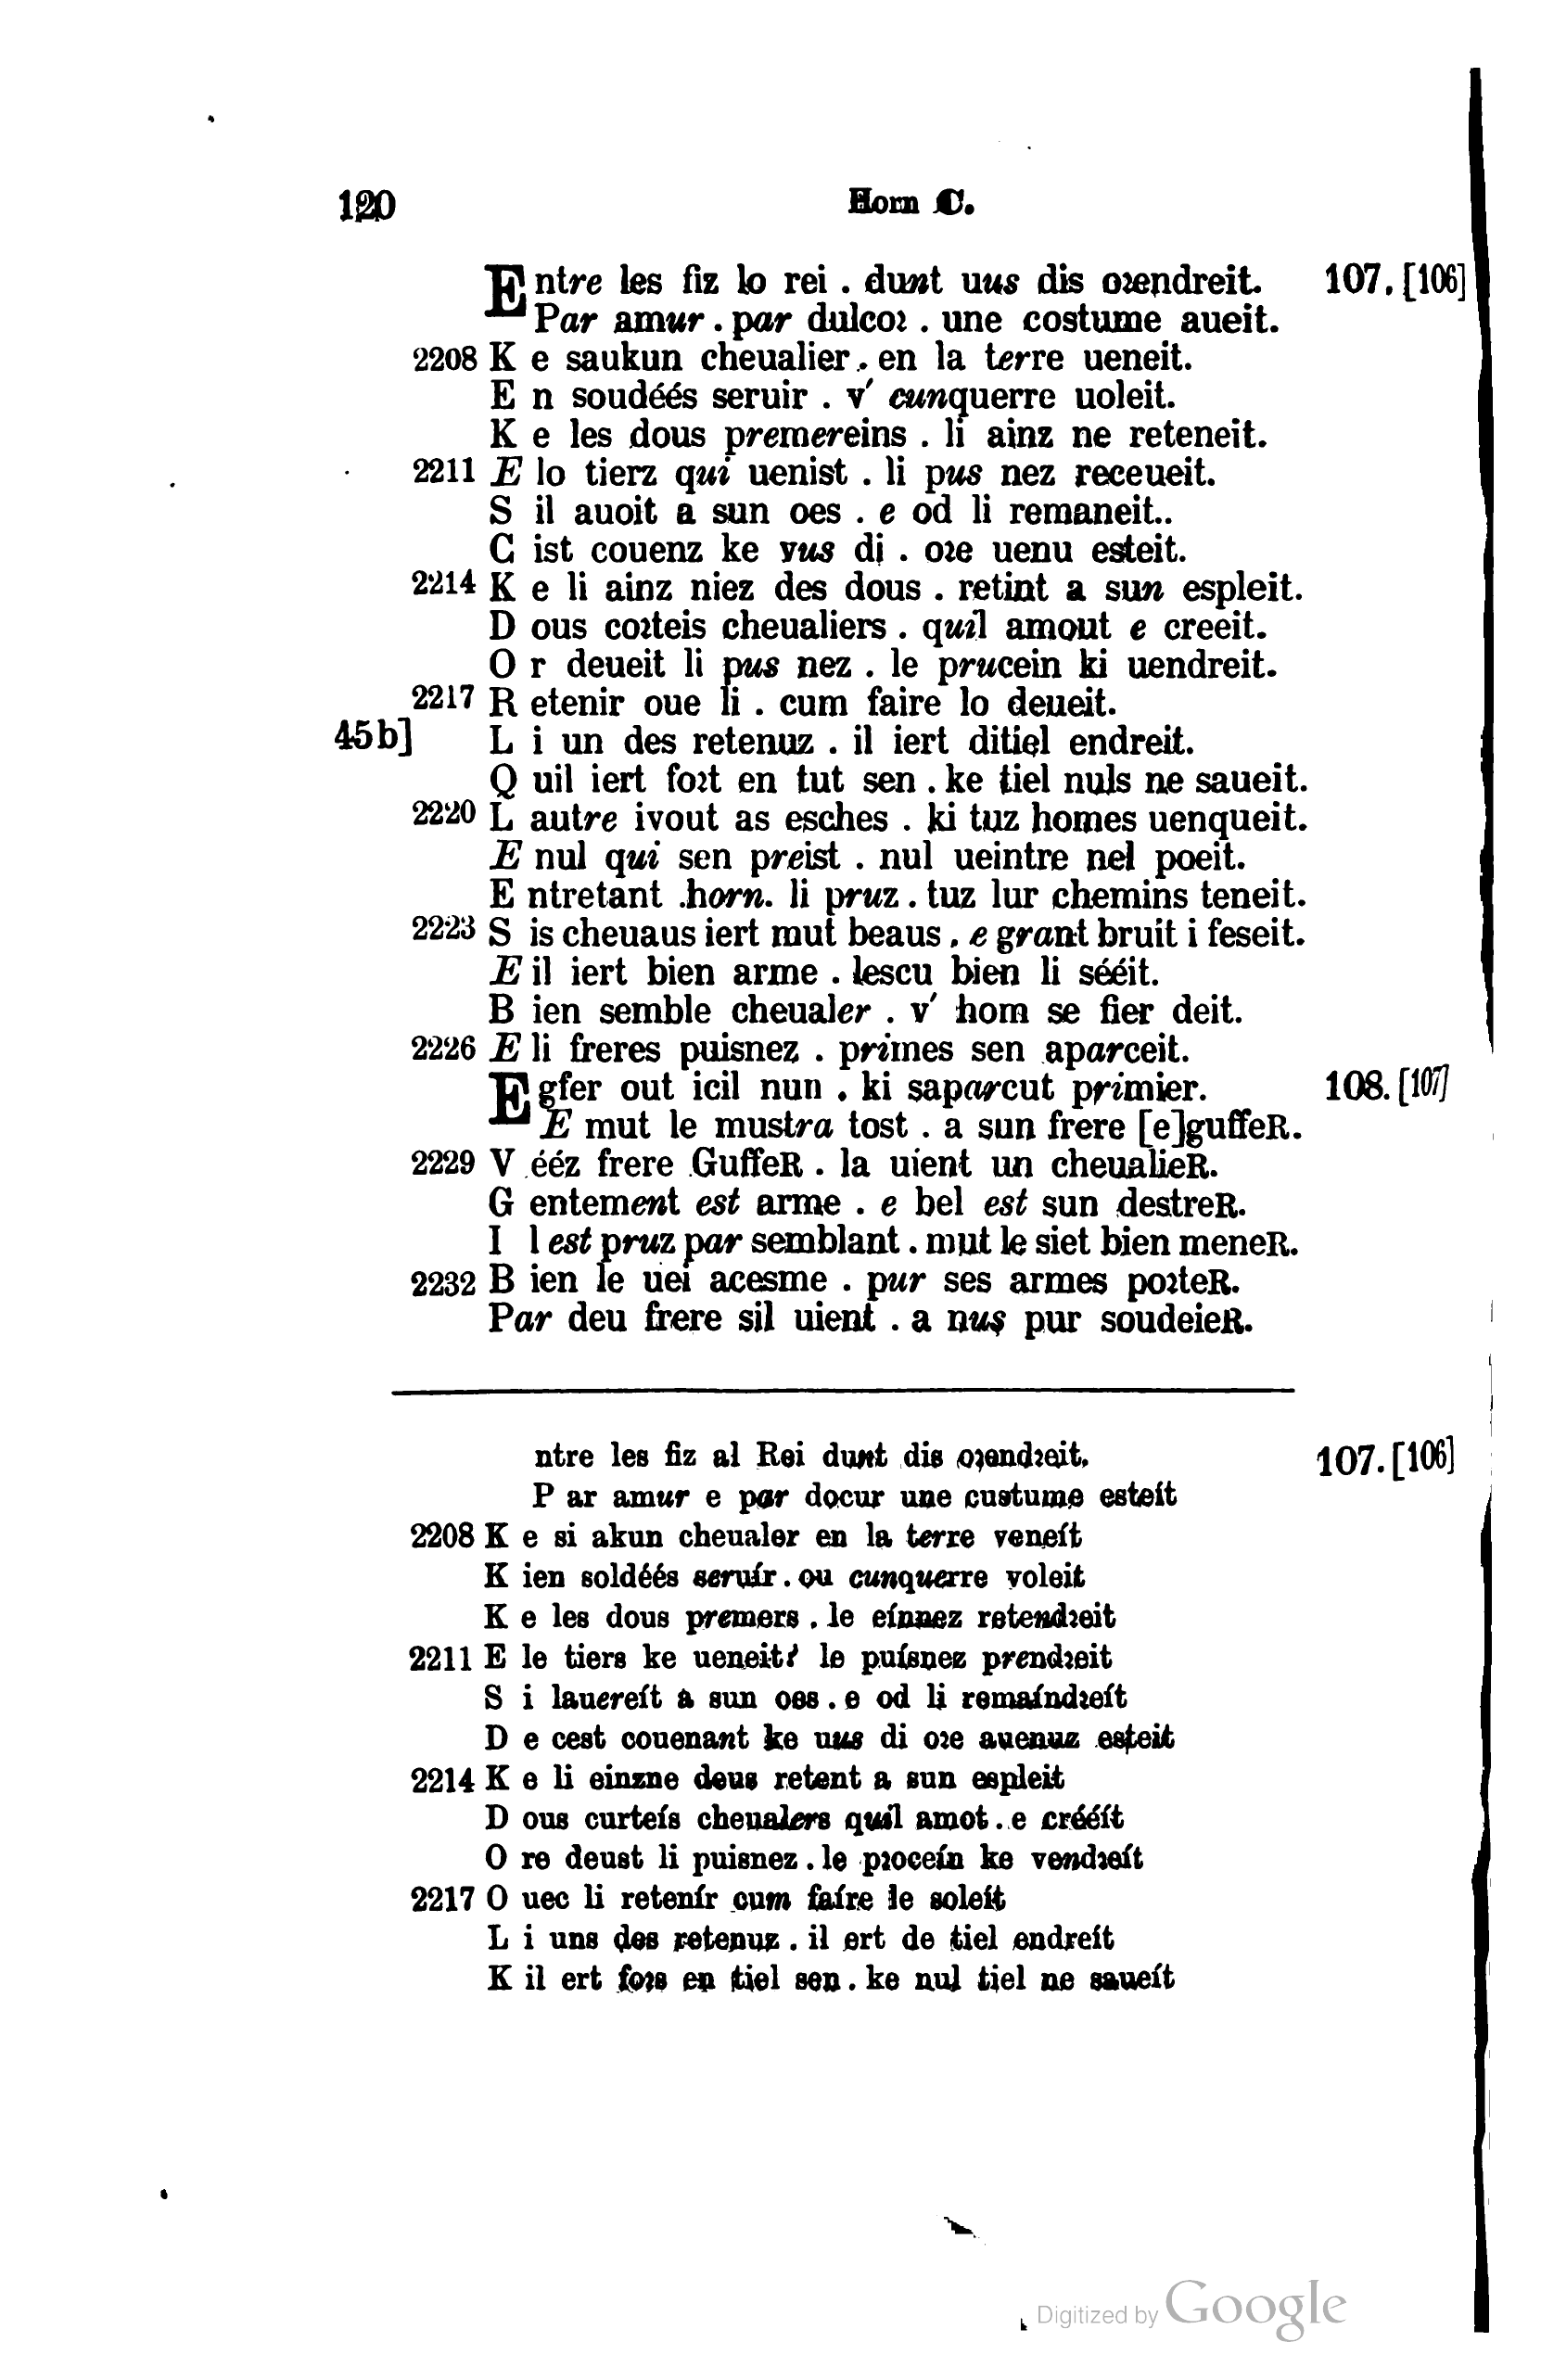 120 Horn C.
Entre les fiz lo rei . dunt uus dis oꝛendreit. 107. [106]
Par amur . par dulcoꝛ . une costume aueit.
2208 K e saukun cheualier . en la terre ueneit.
E n soudéés seruir . v′ cunquerre uoleit.
K e les dous premereins . li ainz ne reteneit.
2211 E lo tierz qui uenist . li pus nez receueit.
S il auoit a sun oes . e od li remaneit..
C ist couenz ke vus di . oꝛe uenu esteit.
2214 K e li ainz niez des dous . retint a sun espleit.
D ous coꝛteis cheualiers . quil amout e creeit.
O r deueit li pus nez . le prucein ki uendreit.
2217 R etenir oue li . cum faire lo deueit.
45b] L i un des retenuz . il iert ditiel endreit.
Q uil iert foꝛt en tut sen . ke tiel nuls ne saueit.
2220 L autre ivout as esches . ki tuz homes uenqueit.
E nul qui sen preist . nul ueintre nel poeit.
E ntretant .horn. li pruz . tuz lur chemins teneit.
2223 S is cheuaus iert mut beaus . e grant bruit i feseit.
E il iert bien arme . lescu bien li sééit.
B ien semble cheualer . v′ hom se fier deit.
2226 E li freres puisnez . primes sen aparceit.
Egfer out icil nun . ki saparcut primier. 108. [107]
E mut le mustra tost . a sun frere [e]guffeR.
2229 V ééz frere GuffeR . la uient un cheualieR.
G entement est arme . e bel est sun destreR.
I l est pruz par semblant . mut le siet bien meneR.
2232 B ien le uei acesme . pur ses armes poꝛteR.
Par deu frere sil uient . a nus pur soudeieR.
ntre les fiz al Rei dunt dis oꝛendꝛeit. 107. [106]
P ar amur e par docur une custume esteít
2208 K e si akun cheualer en la terre veneít
K ien soldéés seruír . ou cunquerre voleit
K e les dous premers . le eínnez retendꝛeit
2211 E le tiers ke ueneit? le puísnez prendꝛeit
S i lauereít a sun oes . e od li remaíndꝛeít
D e cest couenant ke uus di oꝛe auenuz esteit
2214 K e li einzne deus retent a sun espleit
D ous curteís cheualers quil amot . e crééít
O re deust li puisnez . le pꝛoceín ke vendꝛeít
2217 O uec li retenír cum faíre le soleít
L i uns des retenuz . il ert de tiel endreít
K il ert foꝛs en tiel sen . ke nul tiel ne saueít
Digitized by Google